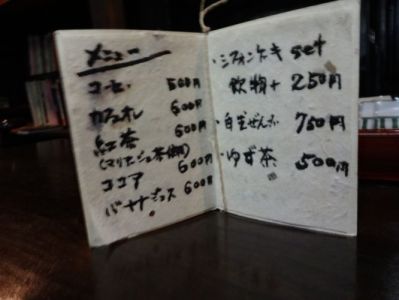 メニュー
コーヒー 500円
カフェオレ 600円
紅茶 600円
(マリアージュ茶葉)
ココア 600円
バナナジュース 600円
・シフォンケーキ set
飲物+250円
・白玉ぜんざい 750円
・ゆず茶 500円